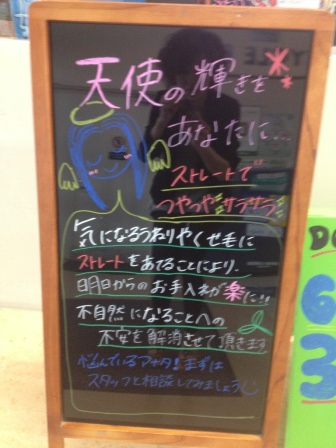 天使の輝きを
あなたに…
ストレートで
つやつやサラサラ
気になるうねりやくせ毛に
ストレートをあてることにより、
明日からのお手入れが楽に!!
不自然になることへの
不安を解消させて頂きます
悩んでいるアナタ!まずは
スタッフと相談してみましょう
6
3